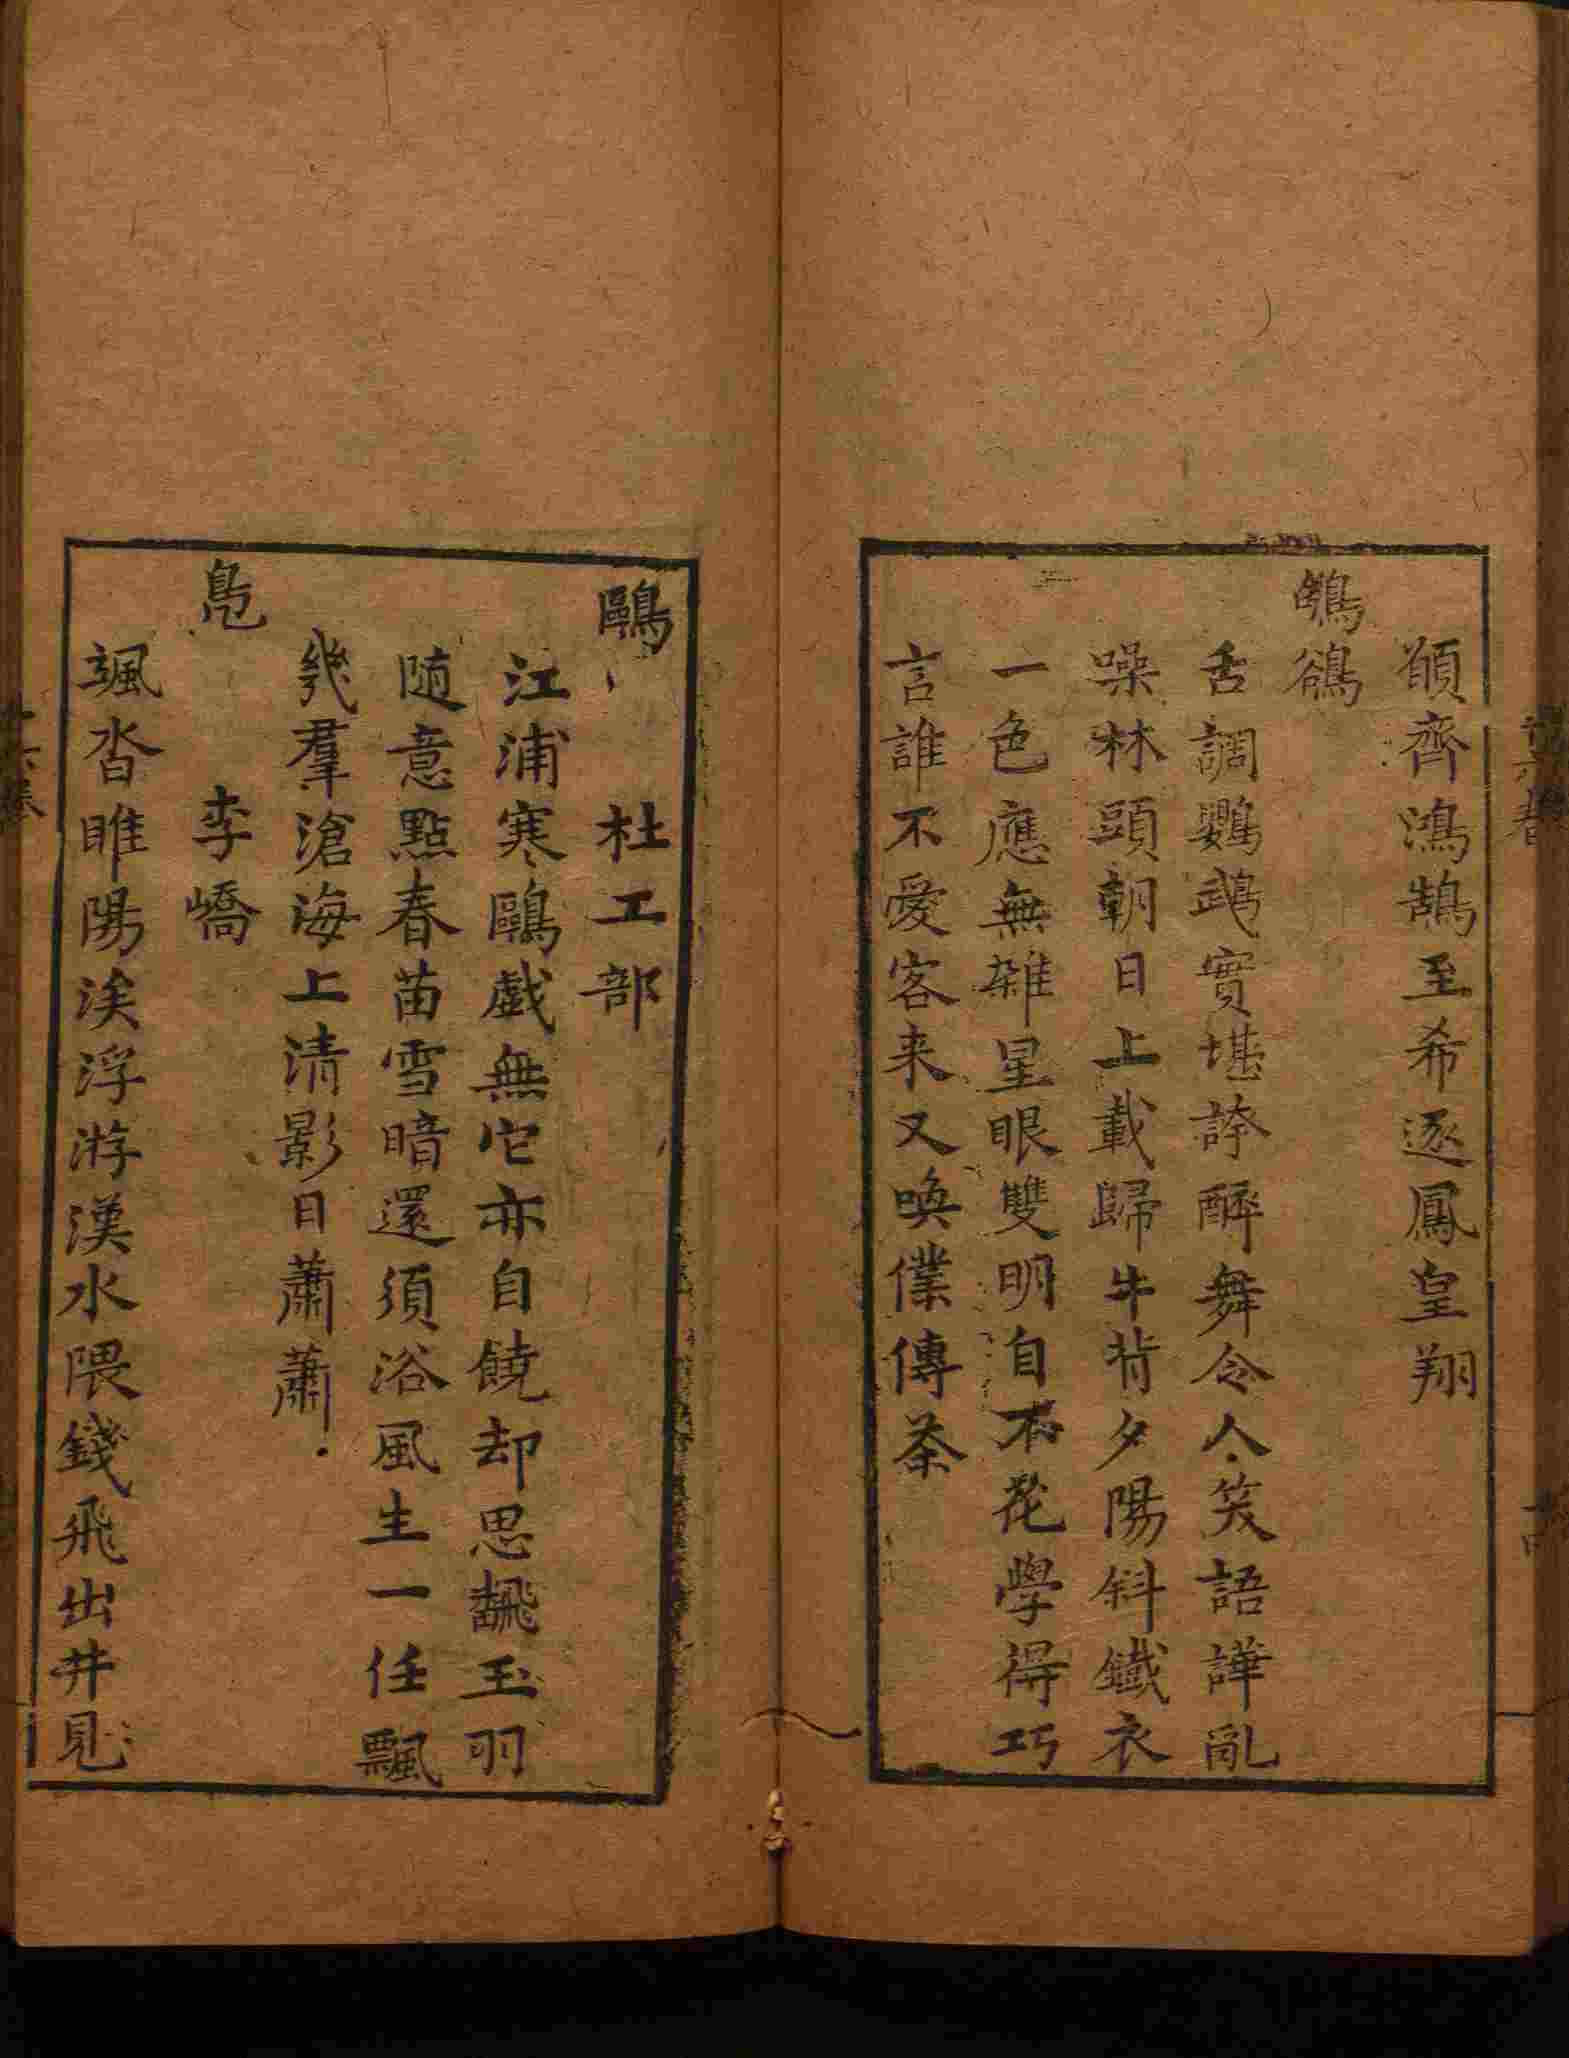 頋齊鴻鵠至希逐鳳皇翔
鸜鵒
舌調鸚鵡實堪誇醉舞令人笑語譁亂
噪林頭朝日上載歸牛背夕陽斜鐵衣
一色應無雜星眼雙明自不花學得巧
言誰不愛客来又喚僕傳茶
鷗 杜工部
江浦寒鷗戲無它亦自饒却思翻玉羽
随意點春苗雪暗還須浴風生一任飄
幾羣滄海上清影日蕭蕭
鳧 李嶠
颯沓睢陽涘浮游漢水隈錢飛出井見